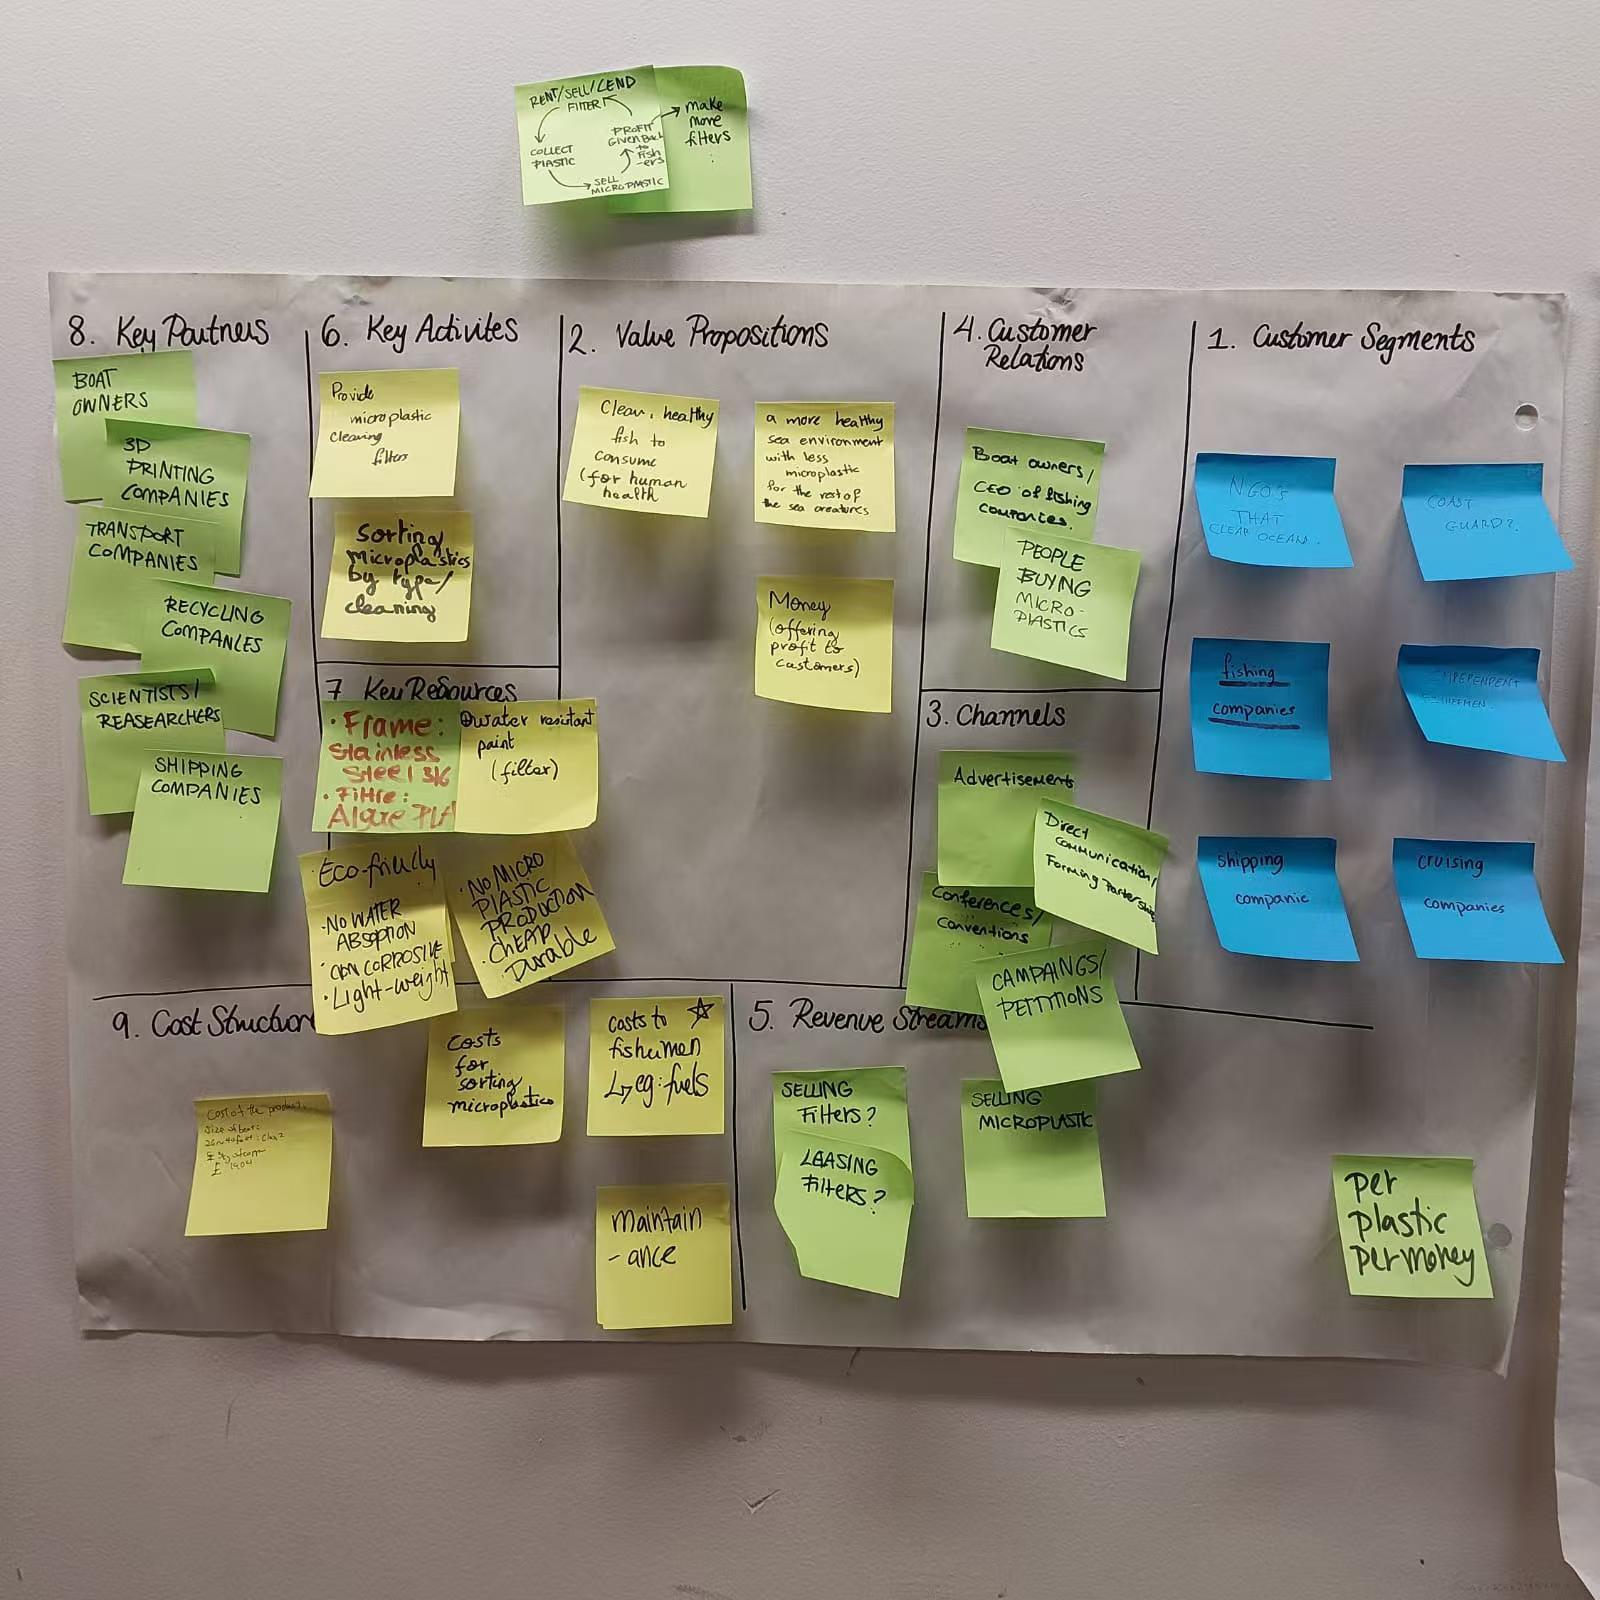 RENT/SELL/LEND
FILTER
COLLECT
PLASTIC
SELL
MICROPLASTIC
PROFIT
GIVEN BACK
to
Fish
-ers
make
more
filters
8. Key Partners
BOAT
OWNERS
3D
PRINTING
COMPANIES
TRANSPORT
COMPANIES
RECYCLING
COMPANIES
SCIENTISTS/
REASEARCHERS
SHIPPING
COMPANIES
6. Key Activites
Provide
microplastic
cleaning
filters
Sorting
Microplastics
by type/
cleaning
7 Key Resources
• Frame:
Stainless
Steel 316
• Filtre:
Algae PLA
water resistant
paint
(filter)
Eco-friendly
• NO WATER
ABSOPTION
• CORROSIVE
• Light-weight
• NO MICRO
PLASTIC
PRODUCTION
• CHEAP
• Durable
2. Value Propositions
Clean, healthy
fish to
consume
(for human
health
a more healthy
sea environment
with less
microplastic
for the rest of
the sea creatures
Money
(offering
profit to
customers)
4. Customer
Relations
Boat owners/
CEO of fishing
companies.
PEOPLE
BUYING
MICRO-
PLASTICS
3. Channels
Advertisements
Direct
communication/
Forming
Conferences/
Conventions
CAMPAINGS/
PETITIONS
1. Customer Segments
NGO's
THAT
CLEAR OCEAN.
COAST
GUARD?
fishing
companies
INDEPENDENT
shipping
companie
cruising
companies
9. Cost Structure
Cost of the product
Size of boat:
Costs
for
sorting
microplastics
costs to ☆
fishermen
↳ eg: fuels
maintain
-ance
5. Revenue Streams
SELLING
FILTERS?
LEASING
FILTERS?
SELLING
MICROPLASTIC
per
plastic
per money